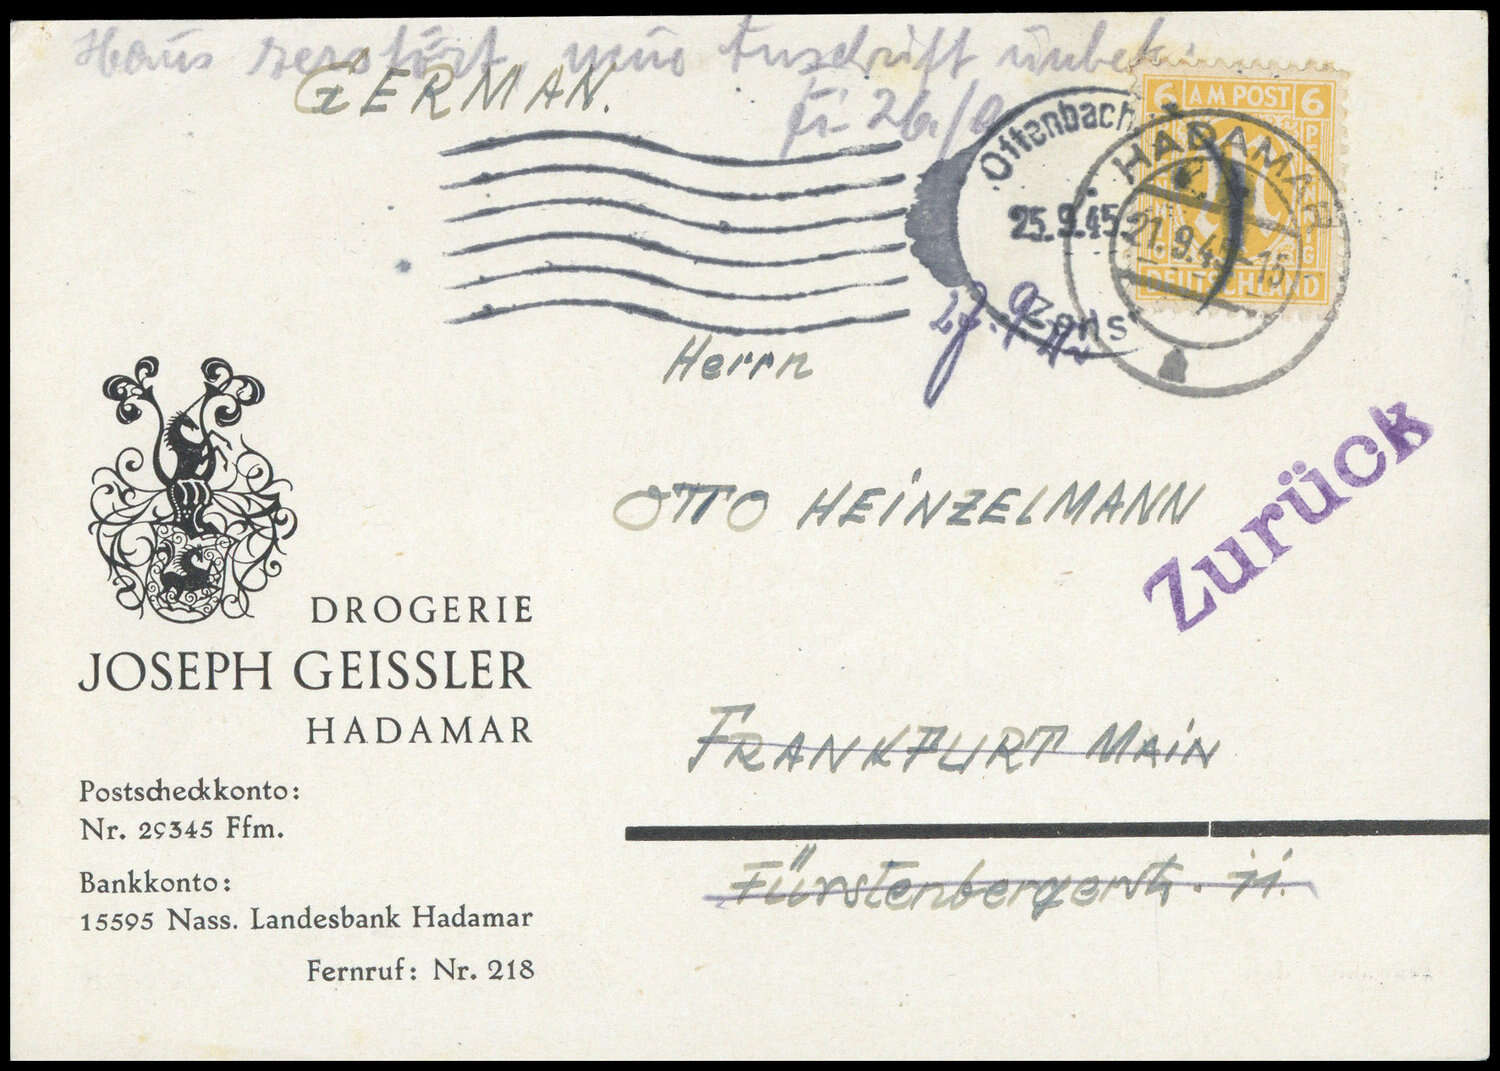 Haus zerstört, neue Anschrift unbek.
GERMAN.
6 AM POST 6
PFENNIG
DEUTSCHLAND
Offenbach
25.9.45
Zens
HADAMAR
21.9.45-15
a
Herrn
OTTO HEINZELMANN
Zurück
DROGERIE
JOSEPH GEISSLER
HADAMAR
FRANKFURT MAIN
Postscheckkonto:
Nr. 29345 Ffm.
Fürstenbergerstr.
Bankkonto:
15595 Nass. Landesbank Hadamar
Fernruf: Nr. 218